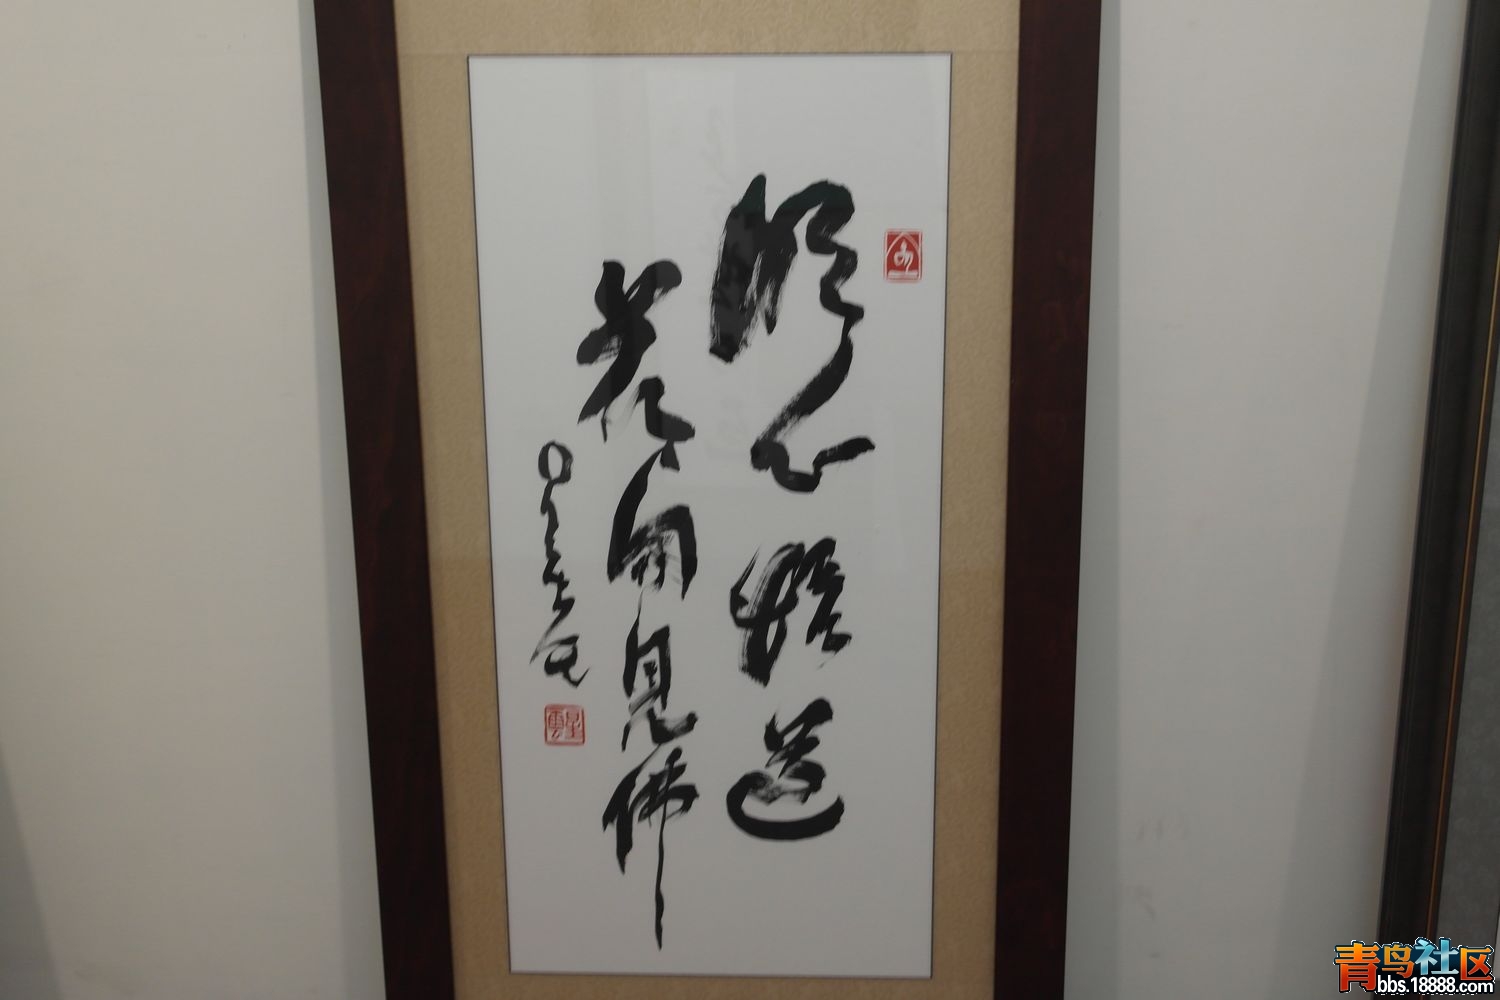 明心悟道
花開見佛
星雲
青鸟社区
bbs.18888.com